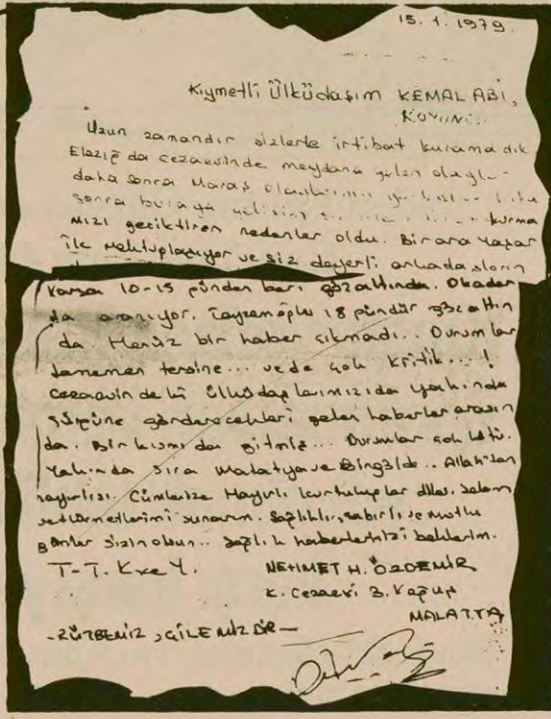 15.1.1979
Kıymetli Ülküdaşım KEMAL ABİ,
Uzun zamandır sizlerle irtibat kuramadık
Elazığ da cezaevinde meydana gelen
daha sonra Maraş
sonra buraya kurma
mızı geciktiren nedenler oldu. Bir ara Yaşar
ile mektuplaşıyor ve siz değerli arkadaşların
varsa 10-15 günden beri gözaltında. Okadar
da aranıyor. 18 gündür gözaltın
da. Henüz bir haber çıkmadı.. Durumlar
tamamen tersine... vede çok kritik....!
cezaevin deki ülküdaşlarımızıda yakında
sürgüne gönderecekleri gelen haberler arasın
da. Bir kısmı da gitmiş... Durumlar çok kötü.
Yakında sıra Malatya ve Bingölde.. Allah'tan
hayırlısı. Cümlenize Hayırlı kurtuluşlar diler. Selam
ve hürmetlerimi sunarım. Sağlıklı, sabırlı ve mutlu
günler sizin olsun.. Sağlık haberlerinizi beklerim.
T-T. K ve Y.
MEHMET H. ÖZDEMİR
K. Cezaevi 3. Koğuş
MALATYA
-RÜTBEMİZ, ÇİLEMİZDİR-